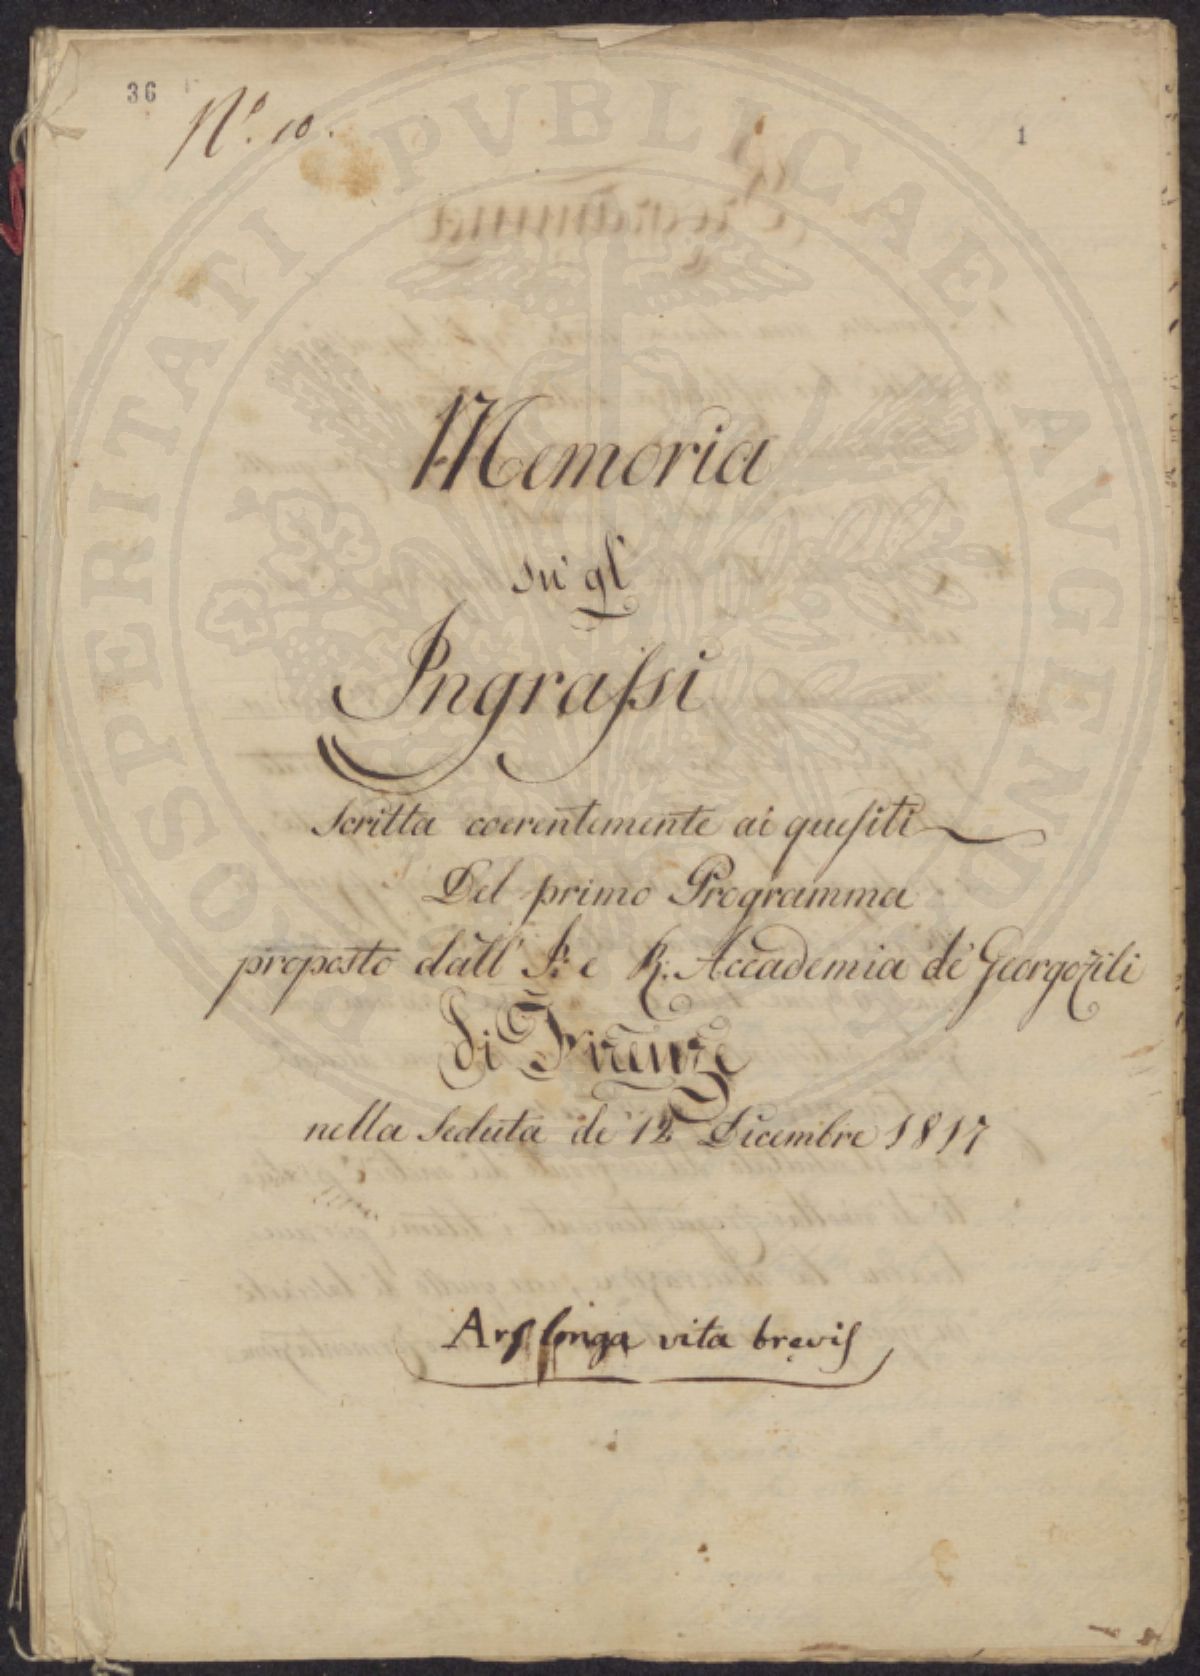 36
N.º 10.
1
Memoria
su' gl'
Ingraſsi
Scritta coerentemente ai queſiti
Del primo Programma
proposto dall' I. e R. Accademia de' Georgofili
di Firenze
nella Seduta de' 12 Dicembre 1817
Ars longa vita brevis
PROSPERITATI PVBLICAE AVGENDAE